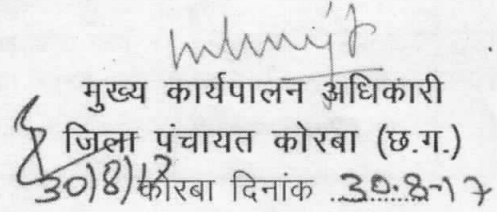 मुख्य कार्यपालन अधिकारी
जिला पंचायत कोरबा (छ.ग.)
30/8/17
कोरबा दिनांक 30.8-17